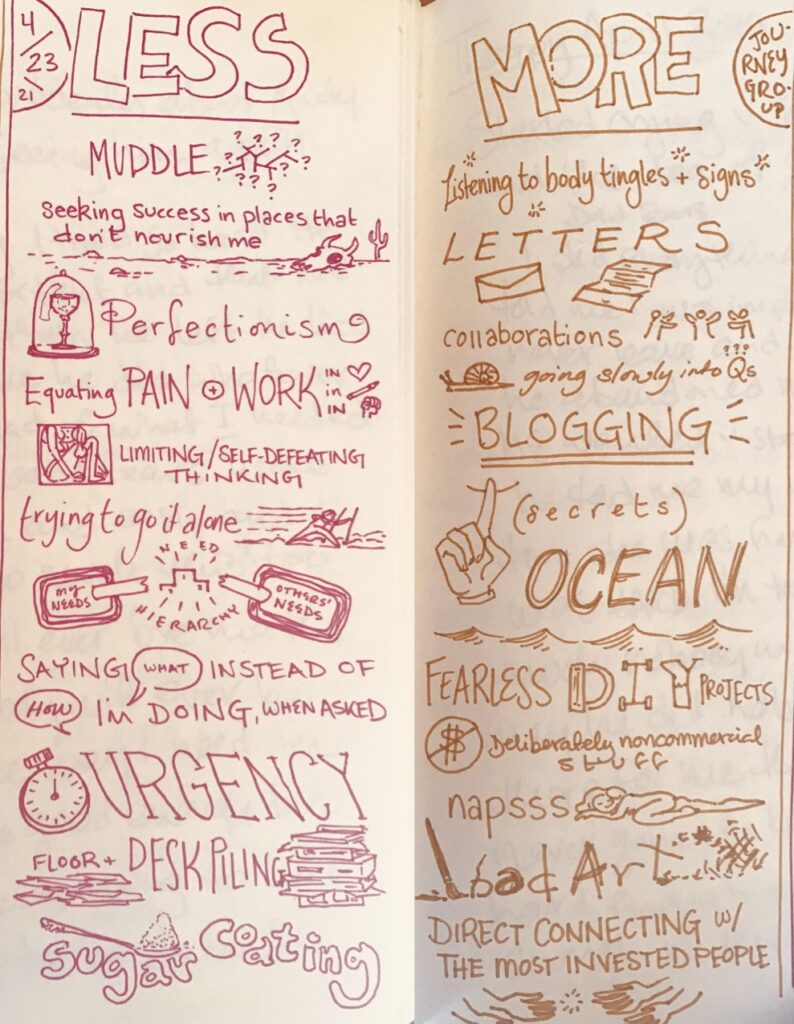 4/23/21
LESS
MUDDLE ? ? ? ? ? ? ? ? ?
Seeking Success in places that
don't nourish me
Perfectionism
Equating PAIN + WORK IN
in
IN
LIMITING/SELF-DEFEATING
THINKING
trying to go it alone
NEED
MY
NEEDS
OTHERS'
NEEDS
HIERARCHY
SAYING WHAT INSTEAD OF
HOW I'M DOING, WHEN ASKED
URGENCY
FLOOR + DESK PILING
Sugar Coating
JOU-
RNEY
GRO-
UP
MORE
Listening to body tingles + signs
LETTERS
collaborations
going slowly into Qs
???
BLOGGING
(secrets)
OCEAN
FEARLESS DIY PROJECTS
$ Deliberately noncommercial
stuff
napsss
bad Art
DIRECT CONNECTING W/
THE MOST INVESTED PEOPLE